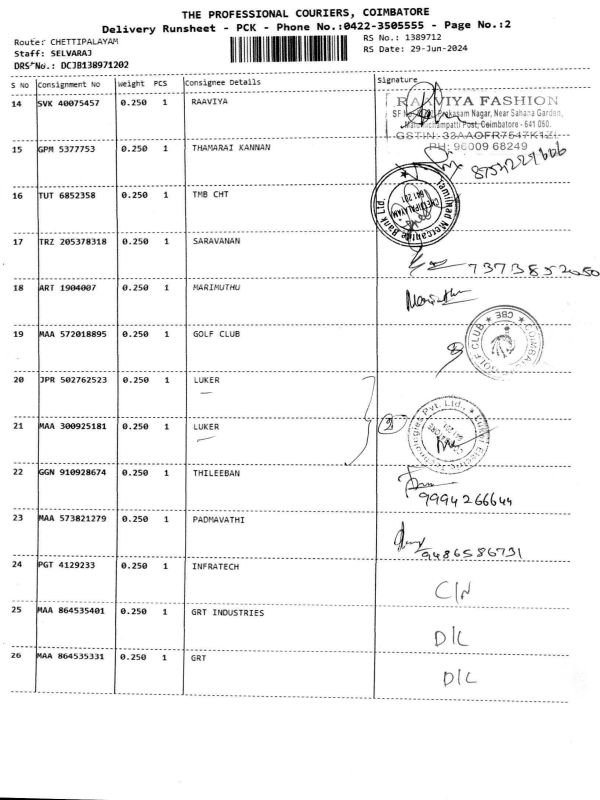 THE PROFESSIONAL COURIERS, COIMBATORE
Delivery Runsheet - PCK - Phone No.:0422-3505555 - Page No.:2
Route: CHETTIPALAYAM
Staff: SELVARAJ
DRS No.: DCJB138971202
RS No.: 1389712
RS Date: 29-Jun-2024
S No Consignment No Weight PCS Consignee Details Signature
14 SVK 40075457 0.250 1 RAAVIYA
RAAVIYA FASHION
Prakasam Nagar, Near Sahana Garden,
Post, Coimbatore - 641 060.
GSTIN: 33AAOFR7547K1ZL
PH: 96009 68249
15 GPM 5377753 0.250 1 THAMARAI KANNAN
16 TUT 6852358 0.250 1 TMB CHT
Tamilnad Mercantile Bank Ltd.
CHETTIPALAYAM
641 201
17 TRZ 205378318 0.250 1 SARAVANAN
7373852050
18 ART 1904007 0.250 1 MARIMUTHU
Marimuthu
19 MAA 572018895 0.250 1 GOLF CLUB
COIMBATORE GOLF CLUB
CBE
20 JPR 502762523 0.250 1 LUKER
21 MAA 300925181 0.250 1 LUKER
2
Technologies Pvt. Ltd.,
22 GGN 910928674 0.250 1 THILEEBAN
9994266644
23 MAA 573821279 0.250 1 PADMAVATHI
9486586731
24 PGT 4129233 0.250 1 INFRATECH
C/N
25 MAA 864535401 0.250 1 GRT INDUSTRIES
D/L
26 MAA 864535331 0.250 1 GRT
D/L